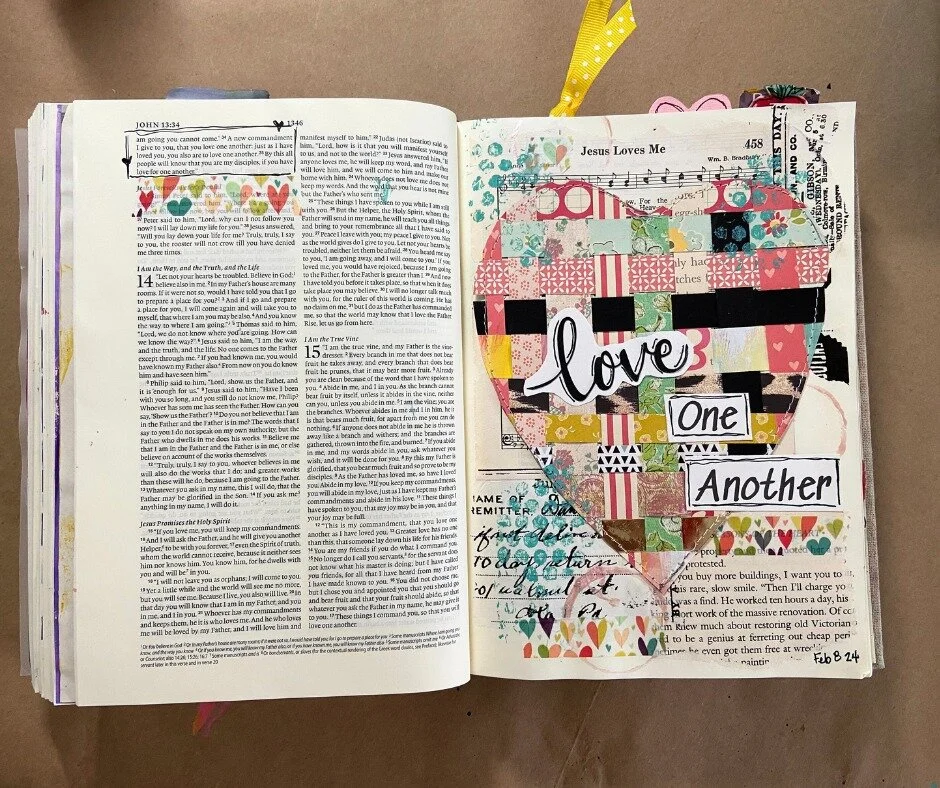 JOHN 13:34
1346
am going you cannot come.' 34 A new commandment
I give to you, that you love one another: just as I have
loved you, you also are to love one another. 35 By this all
people will know that you are my disciples, if you have
love for one another."
Peter said to him, "Lord, why can I not follow you
now? I will lay down my life for you." 38 Jesus answered,
"Will you lay down your life for me? Truly, truly, I say
to you, the rooster will not crow till you have denied
me three times.
I Am the Way, and the Truth, and the Life
14 "Let not your hearts be troubled. Believe in God;
believe also in me. 2 In my Father's house are many
rooms. If it were not so, would I have told you that I go
to prepare a place for you? 3 And if I go and prepare
a place for you, I will come again and will take you to
myself, that where I am you may be also. 4 And you know
the way to where I am going." 5 Thomas said to him,
"Lord, we do not know where you are going. How can
we know the way?" 6 Jesus said to him, "I am the way,
and the truth, and the life. No one comes to the Father
except through me. 7 If you had known me, you would
have known my Father also. From now on you do know
him and have seen him."
8 Philip said to him, "Lord, show us the Father, and
it is enough for us." 9 Jesus said to him, "Have I been
with you so long, and you still do not know me, Philip?
Whoever has seen me has seen the Father. How can you
say, 'Show us the Father'? 10 Do you not believe that I am
in the Father and the Father is in me? The words that I
say to you I do not speak on my own authority, but the
Father who dwells in me does his works. 11 Believe me
that I am in the Father and the Father is in me, or else
believe on account of the works themselves.
12 "Truly, truly, I say to you, whoever believes in me
will also do the works that I do; and greater works
than these will he do, because I am going to the Father.
13 Whatever you ask in my name, this I will do, that the
Father may be glorified in the Son. 14 If you ask me
anything in my name, I will do it.
Jesus Promises the Holy Spirit
15 "If you love me, you will keep my commandments.
16 And I will ask the Father, and he will give you another
Helper, to be with you forever, 17 even the Spirit of truth,
whom the world cannot receive, because it neither sees
him nor knows him. You know him, for he dwells with
you and will be in you.
18 "I will not leave you as orphans; I will come to you.
19 Yet a little while and the world will see me no more,
but you will see me. Because I live, you also will live. 20 In
that day you will know that I am in my Father, and you
in me, and I in you. 21 Whoever has my commandments
and keeps them, he it is who loves me. And he who loves
me will be loved by my Father, and I will love him and
manifest myself to him." 22 Judas (not Iscariot) said to
him, "Lord, how is it that you will manifest yourself
to us, and not to the world?" 23 Jesus answered him, "If
anyone loves me, he will keep my word, and my Father
will love him, and we will come to him and make our
home with him. 24 Whoever does not love me does not
keep my words. And the word that you hear is not mine
but the Father's who sent me.
25 "These things I have spoken to you while I am still
with you. 26 But the Helper, the Holy Spirit, whom the
Father will send in my name, he will teach you all things
and bring to your remembrance all that I have said to
you. 27 Peace I leave with you; my peace I give to you. Not
as the world gives do I give to you. Let not your hearts be
troubled, neither let them be afraid. 28 You heard me say
to you, 'I am going away, and I will come to you.' If you
loved me, you would have rejoiced, because I am going
to the Father, for the Father is greater than I. 29 And now
I have told you before it takes place, so that when it does
take place you may believe. 30 I will no longer talk much
with you, for the ruler of this world is coming. He has
no claim on me, 31 but I do as the Father has commanded
me, so that the world may know that I love the Father.
Rise, let us go from here.
I Am the True Vine
15 "I am the true vine, and my Father is the vine-
dresser. 2 Every branch in me that does not bear
fruit he takes away, and every branch that does bear
fruit he prunes, that it may bear more fruit. 3 Already
you are clean because of the word that I have spoken to
you. 4 Abide in me, and I in you. As the branch cannot
bear fruit by itself, unless it abides in the vine, neither
can you, unless you abide in me. 5 I am the vine; you are
the branches. Whoever abides in me and I in him, he it
is that bears much fruit, for apart from me you can do
nothing. 6 If anyone does not abide in me he is thrown
away like a branch and withers; and the branches are
gathered, thrown into the fire, and burned. 7 If you abide
in me, and my words abide in you, ask whatever you
wish, and it will be done for you. 8 By this my Father is
glorified, that you bear much fruit and so prove to be my
disciples. 9 As the Father has loved me, so have I loved
you. Abide in my love. 10 If you keep my commandments,
you will abide in my love, just as I have kept my Father's
commandments and abide in his love. 11 These things I
have spoken to you, that my joy may be in you, and that
your joy may be full.
12 "This is my commandment, that you love one
another as I have loved you. 13 Greater love has no one
than this, that someone lay down his life for his friends.
14 You are my friends if you do what I command you.
15 No longer do I call you servants, for the servant does
not know what his master is doing; but I have called
you friends, for all that I have heard from my Father
I have made known to you. 16 You did not choose me,
but I chose you and appointed you that you should go
and bear fruit and that your fruit should abide, so that
whatever you ask the Father in my name, he may give it
to you. 17 These things I command you, so that you will
love one another.
Jesus Loves Me
458
Wm. B. Bradbury
THIS DAY.
N, AND CO.
GIBSON CO.
For
Heav
egg-sh
ly hac
tches
love
One
Another
NAME OF
REMITTER
if not deliver
10 day return
protested.
you buy more buildings, I want you to
his rare, slow smile. "Then I'll charge yo
was a find. He worked ten hours a day, hi
g work of the massive renovation. Of co
em Riew much about restoring old Victorian
d to be a genius at ferreting out cheap peri
he even got them free at
Feb 8 24